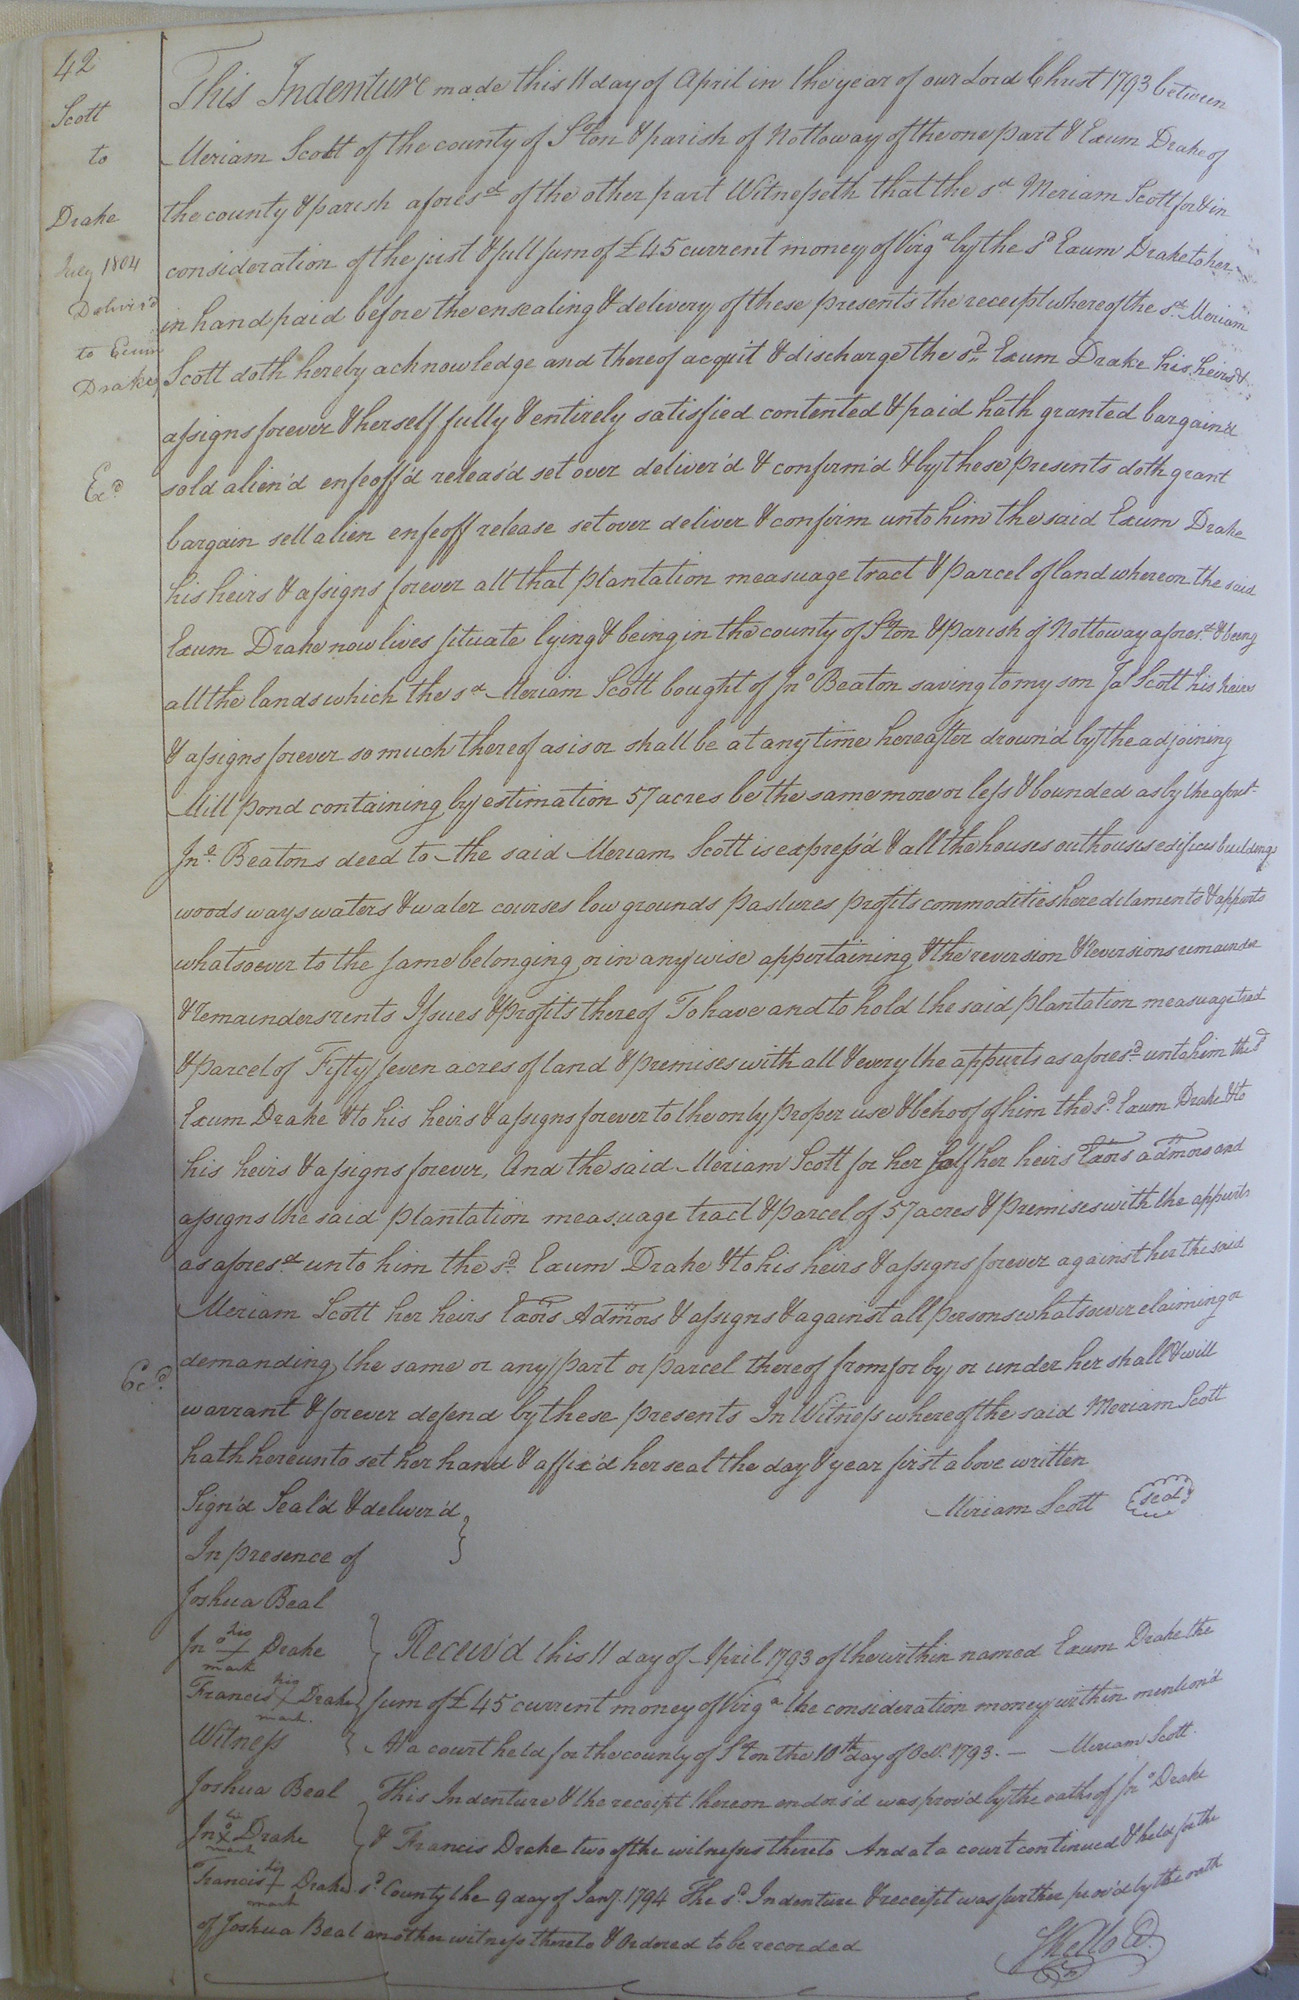 42
Scott
to
Drake
July 1804
Deliver'd
to Exum
Drake
Exd
This Indenture made this 11 day of April in the year of our Lord Christ 1793 between
Meriam Scott of the county of Sºton & parish of Nottoway of the one part & Exum Drake of
the county & parish aforesd of the other part Witnesseth that the sd Meriam Scott for & in
consideration of the just & full sum of £45 current money of Virga by the sd Exum Drake to her
in hand paid before the ensealing & delivery of these presents the receipt whereof the sd Meriam
Scott doth hereby acknowledge and thereof acquit & discharge the sd Exum Drake his heirs &
assigns forever & herself fully & entirely satisfied contented & paid hath granted bargain'd
sold alien'd enfeoff'd releas'd set over deliver'd & confirm'd & by these presents doth grant
bargain sell alien enfeoff release set over deliver & confirm unto him the said Exum Drake
his heirs & assigns forever all that plantation measuage tract & parcel of land whereon the said
Exum Drake now lives situate lying & being in the county of Sºton & parish of Nottoway aforesd & being
all the lands which the sd Meriam Scott bought of Jno Beaton saving to my son Ja Scott his heirs
& assigns forever so much thereof as is or shall be at any time hereafter drown'd by the adjoining
Mill pond containing by estimation 57 acres be the same more or less & bounded as by the
Jno Beatons deed to the said Meriam Scott is express'd & all the houses outhouses edifices buildings
woods ways waters & water courses low grounds pastures profits commodities hereditaments & appurts
whatsoever to the same belonging or in any wise appertaining & the reversion & reversions remainder
& remainders rents Issues & profits thereof To have and to hold the said plantation measuage tract
& parcel of Fifty seven acres of land & premises with all & every the appurts as aforesd unto him the sd
Exum Drake & to his heirs & assigns forever to the only proper use & behoof of him the sd Exum Drake & to
his heirs & assigns forever, And the said Meriam Scott for her self her heirs Exors admors and
assigns the said plantation measuage tract & parcel of 57 acres & premises with the appurts
as aforesd unto him the sd Exum Drake & to his heirs & assigns forever against her the said
Meriam Scott her heirs Exors Admors & assigns & against all persons whatsoever claiming or
demanding the same or any part or parcel thereof from for by or under her shall & will
warrant & forever defend by these presents In Witness whereof the said Meriam Scott
hath hereunto set her hand & affix'd her seal the day & year first above written
Sign'd Seal'd & deliver'd
Miriam Scott seal
In presence of
Joshua Beal
Jno his + mark Drake
Francis his + mark Drake
Receiv'd this 11 day of April 1793 of the within named Exum Drake the
sum of £45 current money of Virga the consideration money within mention'd
Meriam Scott
Witness
Joshua Beal
Jno his X mark Drake
Francis his + mark Drake
At a court held for the county of Sºton the 10th day of Oct. 1793. —
This Indenture & the receipt thereon endors'd was prov'd by the oaths of Jno Drake
& Francis Drake two of the witnesses thereto And at a court continued & held for the
sd County the 9 day of Jany. 1794 The sd Indenture & receipt was further prov'd by the oath
of Joshua Beal another witness thereto & Ordered to be recorded